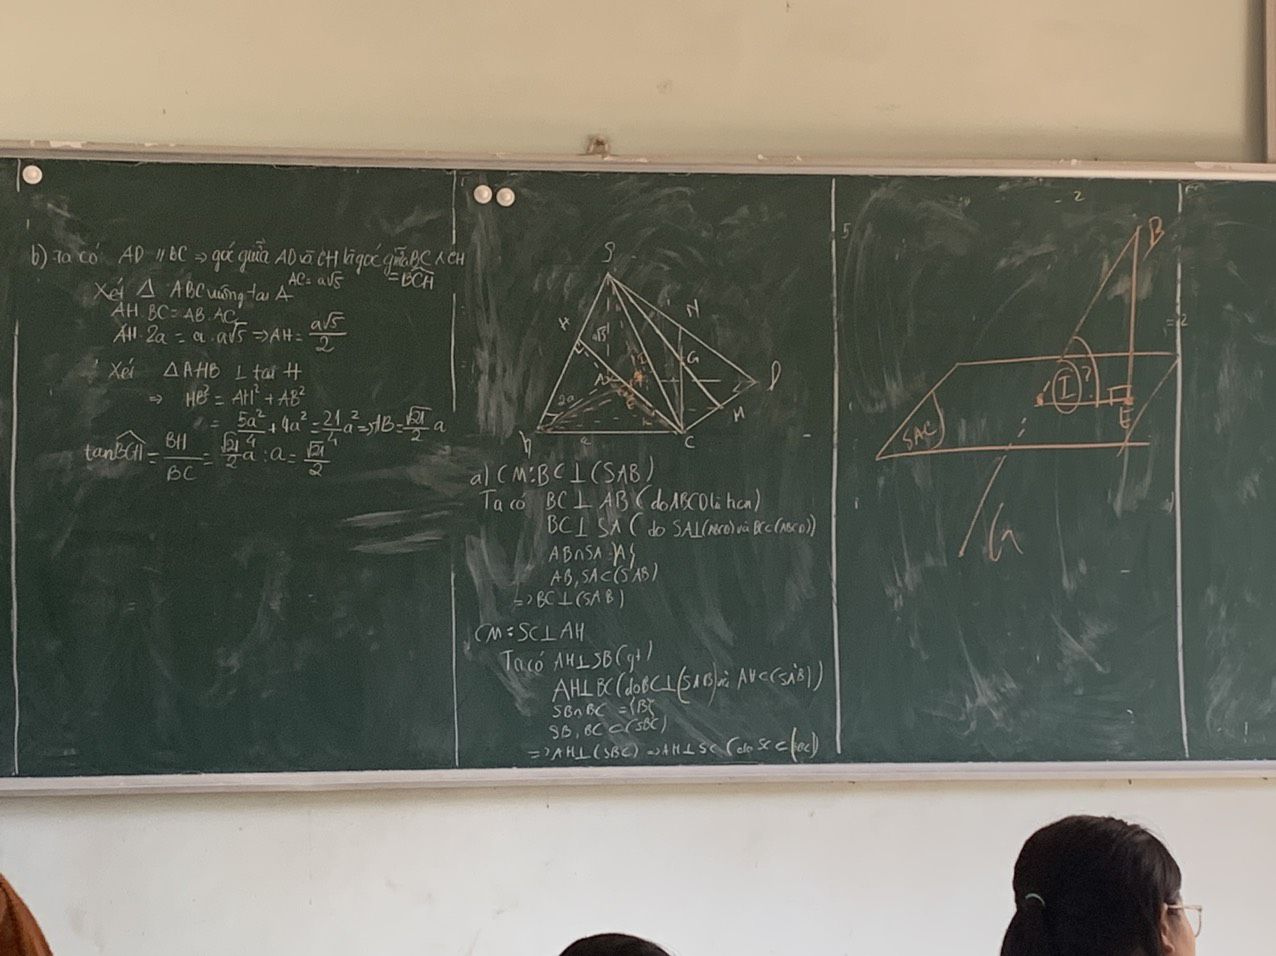 b) Ta có AD // BC ⇒ góc giữa AD và CH là góc giữa BC và CH
= BĈH
Xét Δ ABC vuông tại A
AC = a√5
AH.BC = AB.AC
AH.2a = a.a√5 ⇒ AH = a√5/2
Xét ΔAHB ⊥ tại H
⇒ HB² = AH² + AB²
= 5a²/4 + 4a² = 21/4 a² ⇒ AB = √21/2 a
tan BĈH = BH/BC = √21/2 a : a = √21/2
S
H
N
G
A
D
M
B
C
2a
a
a) CM: BC ⊥ (SAB)
Ta có BC ⊥ AB (do ABCD là hcn)
BC ⊥ SA (do SA⊥(ABCD) và BC⊂(ABCD))
AB∩SA = {A}
AB, SA⊂(SAB)
⇒ BC⊥(SAB)
CM: SC⊥AH
Ta có AH⊥SB (gt)
AH⊥BC (do BC⊥(SAB) và AH⊂(SAB))
SB∩BC = {B}
SB, BC⊂(SBC)
⇒ AH⊥(SBC) ⇒ AH⊥SC (do SC⊂(SBC))
B
I
?
E
SAC
G